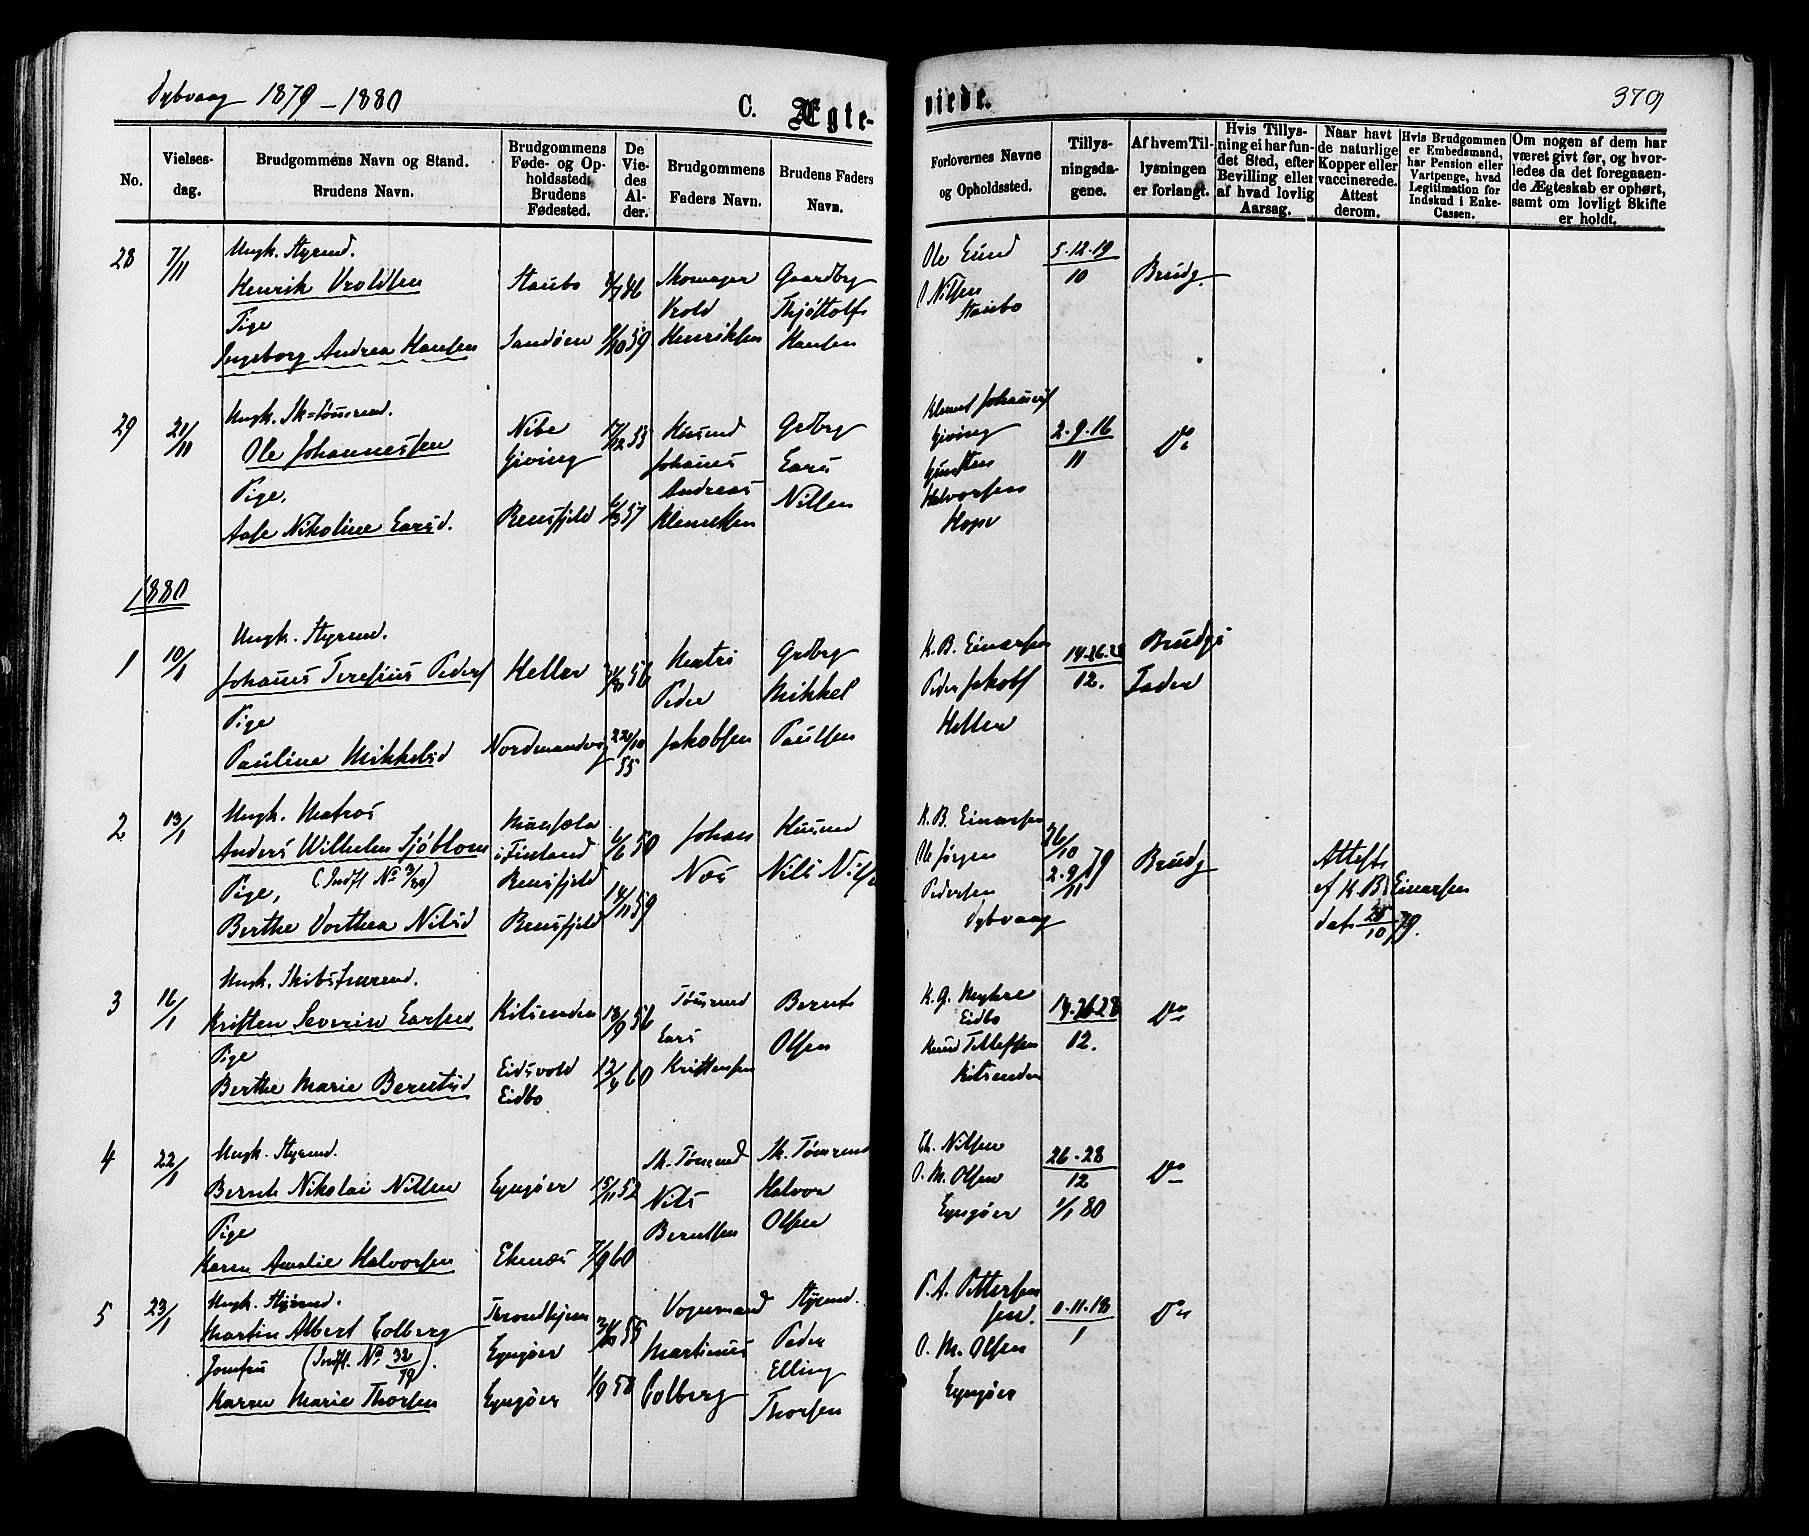 Dybvaag 1879-1880
C. Ægte-
viede.
379
No.
Vielses-
dag.
Brudgommens Navn og Stand.
Brudens Navn.
Brudgommens
Føde- og Op-
holdssted.
Brudens
Fødested.
De
Vie-
des
Al-
der.
Brudgommens
Faders Navn.
Brudens Faders
Navn.
Forlovernes Navne
og Opholdssted.
Tillys-
ningsda-
gene.
Af hvem Til-
lysningen
er forlangt.
Hvis Tillys-
ning ei har fun-
det Sted, efter
Bevilling eller
af hvad lovlig
Aarsag.
Naar havt
de naturlige
Kopper eller
vaccinerede.
Attest
derom.
Hvis Brudgommen
er Embedsmand,
har Pension eller
Vartpenge, hvad
Legitimation for
Indskud i Enke-
Cassen.
Om nogen af dem har
været givt før, og hvor-
ledes da det foregaaen-
de Ægteskab er ophørt,
samt om lovligt Skifte
er holdt.
28
7/11
Ungk. Styrmd.
Henrik Vroldsen
Pige
Ingeborg Andrea Hansen
Staubo
Sandøen
46
59
Skomager
Vrold
Henriksen
Gaardbrg
Thjøstolf
Hansen
Ole Lund
Nilsen
Staubo
5-12-19
10
Brudg.
29
21/11
Ungk. Sk=Tømrmd.
Ole Johannessen
Pige,
Aase Nikoline Larsd.
Nibe
Giving
Rensfjeld
17/12 55
57
Husmd
Johanes
Andreas
Klemetsen
Grdbrg
Lars
Nilsen
Klemet Johannes
Giving
Halvorsen
Hope
2-9-16
11
Do
1880
1
10/1
Ungk. Styrmd.
Johanes Teresius Peders
Pige
Pauline Mikkelsd
Hellen
Nordmandvig
56
22/10
55
Peder
Jakobsen
Grdbrg
Mikkel
Paulsen
K. B. Einarsen
Peder Jakobs
Hellen
14-26-28
12.
Brudgs
Fader
2
13/1
Ungk. Matros
Anders Wilhelm Sjöblom
Pige, (Indfl No 3/80)
Berthe Dorthea Nilsd
i Finland
Rensfjeld
Rensfjeld
6/6 50
14/11 59
Johan
Næs
Husmd
Nils Nils
K. B. Einarsen
Ole Jørgen
Pedersen
Dybvaag
26/10
2-9/11 79
Brudg
Attest
af K. B. Einarsen
dat. 25/10 79.
3
16/1
Ungk. Skibstømrmd.
Kristen Severin Larsen
Pige
Berthe Marie Berntsd
Kilsenden
Eidsvold
Eidbo
18/9 56
12/4 60
Tømrmd
Lars
Kristensen
Bernt
Olsen
Eidbo
Knud Tellefsen
Kilsenden
14-26-28
12.
Do
4
22/1
Ungk. Styrmd.
Bernt Nikolai Nilsen
Pige
Karen Amalie Halvorsen
Lyngøer
Ekenæs
15/11 52
7/9 60
Sk. Tømrmd
Nils
Berntsen
Sk. Tømrmd
Halvor
Olsen
Ch. Nilsen
O. M. Olsen
Lyngøer
26-28
12
1/1 80
Do
5
23/1
Ungk. Styrmd.
Martin Albert Colberg
Jomfru (Indfl. No 32/79).
Karen Marie Thorsen
Throndhjem
Lyngøer
Lyngøer
55
1/9 58
Vognmand
Martinus
Colberg
Styrmd.
Peder
Elling
Thorsen
P. A. Pettersen
sen.
O. M. Olsen
Lyngøer
6-11-18
1
Do